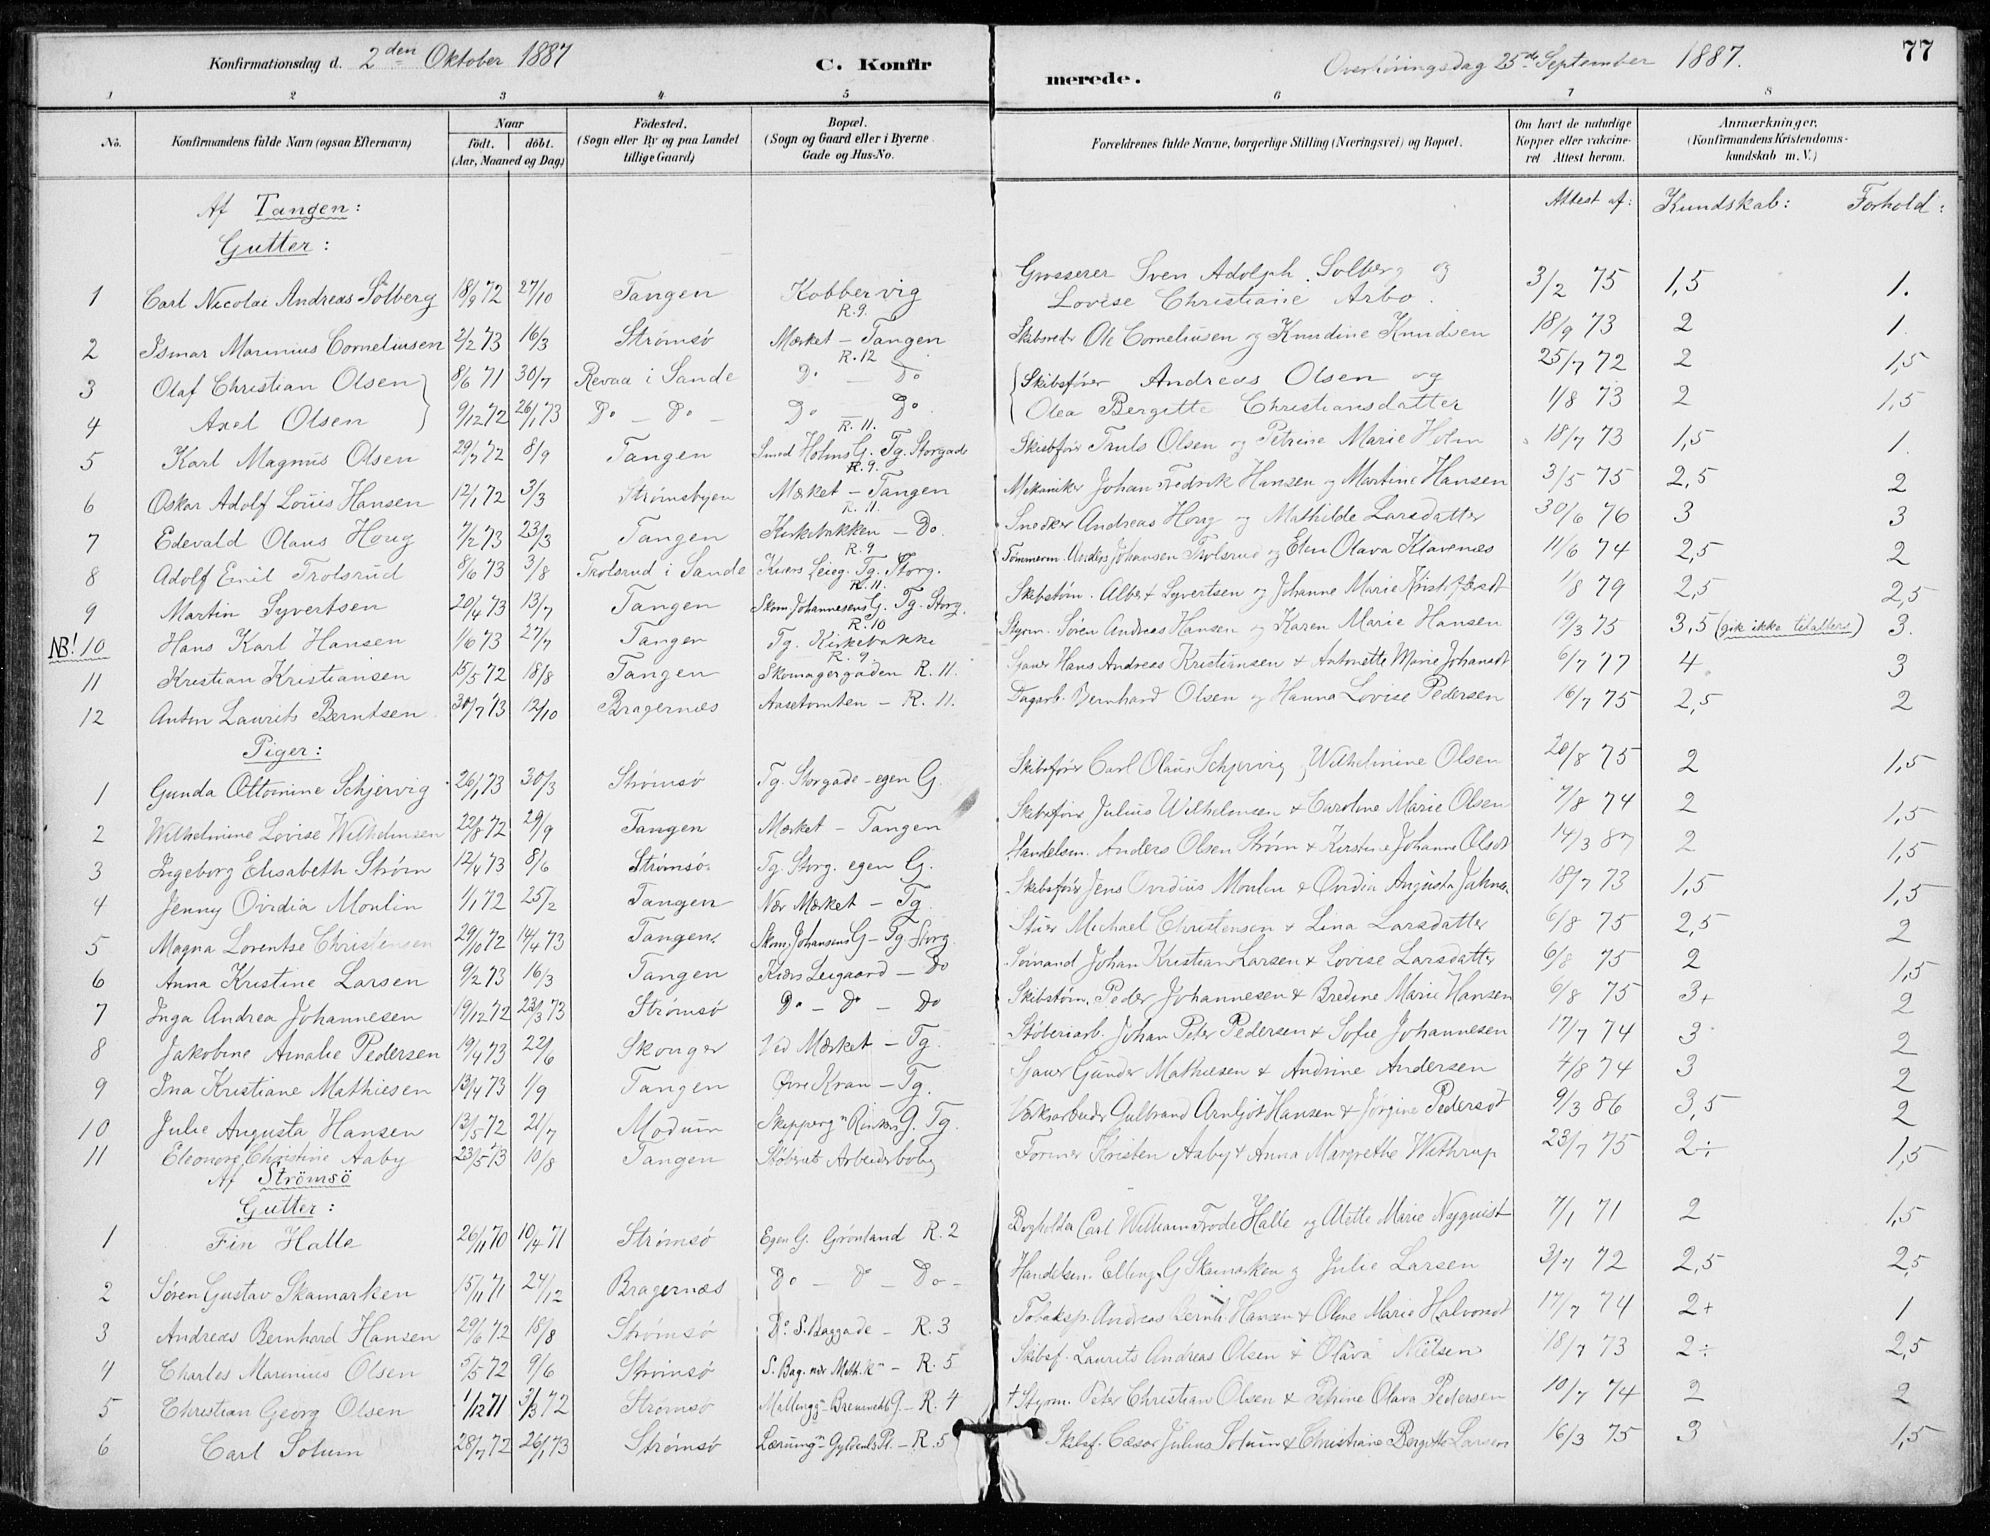 Konfirmationsdag d. 2den Oktober 1887 C. Konfirmerede. Overhøringsdag 25de September 1887. 77
1 2 3 4 5 6 7 8
No. Konfirmandens fulde Navn (ogsaa Efternavn) Naar født. døbt. (Aar, Maaned og Dag) Fødested. (Sogn eller By og paa Landet tillige Gaard) Bopæl. (Sogn og Gaard eller i Byerne Gade og Hus-No. Forældrenes fulde Navne, borgerlige Stilling (Næringsvei) og Bopæl. Om havt de naturlige Kopper eller vakcineret Attest herom. Anmærkninger. (Konfirmandens Kristendomskundskab m. V.)
Af Tangen: Attest af: Kundskab: Forhold:
Gutter:
1 Carl Nicolai Andreas Solberg 18/9 72 27/10 Tangen Kobbervig R. 9. Grosserer Sven Adolph Solberg og Lovise Christiane Arbo. 3/2 75 1,5 1.
2 Ismar Marinius Corneliusen 2/2 73 16/3 Strømsø Mærket - Tangen R. 12 Skibsreder Ole Corneliusen og Knudine Knudsen 18/9 73 2 1.
3 Olaf Christian Olsen 8/6 71 30/7 Revaa i Sande Do - Do Skibsfører Andreas Olsen og 25/7 72 2 1,5
4 Axel Olsen 9/12 72 26/1 73 Do - Do - Do - Do R. 11. Olea Bergitte Christiansdatter 1/8 73 2 1,5
5 Karl Magnus Olsen 29/7 72 8/9 Tangen Smed Holms G. Tg. Storgade R. 9. Skibsfører Truls Olsen og Petrine Marie Holm 18/7 73 1,5 1.
6 Oskar Adolf Louis Hansen 12/1 72 3/3 Strømsbyen Mærket - Tangen R. 11. Mekaniker Johan Fredrik Hansen og Martine Hansen 3/5 75 2,5 2
7 Edevald Olaus Houg 7/2 73 23/3 Tangen Kirkebakken - Do. R. 9 Snedker Andreas Houg og Mathilde Larsdatter 30/6 76 3 3
8 Adolf Emil Trolsrud 8/6 73 3/8 Trolsrud i Sande Kiærs Leieg. Tg. Storg. R. 11. Tømmerm. Anders Johansen Trolsrud og Elen Olava Klavenæs 11/6 74 2,5 2
9 Martin Syvertsen 20/4 73 13/7 Tangen Skom. Johannesens G. Tg. Storg. R. 10 Skibstøm. Albert Syvertsen og Johanne Marie 1/8 79 2,5 2,5
NB! 10 Hans Karl Hansen 1/6 73 27/7 Tangen Tg. Kirkebakke R. 9. Styrm. Søren Andreas Hansen og Karen Marie Hansen 19/3 75 3,5 (gik ikke tilalters) 3.
11 Kristian Kristiansen 15/5 72 18/8 Tangen Skomagergaden R. 11. Sjauer Hans Andreas Kristiansen & Antonette Marie Johansdt 6/7 77 4 3
12 Anton Laurits Berntsen 30/7 73 12/10 Bragernæs Aasetomten - R. 11. Dagarb. Bernhard Olsen og Hanna Lovise Pedersen 16/7 75 2,5 2
Piger:
1 Gunda Ottomine Schjervig 26/1 73 30/3 Strømsø Tg. Storgade - egen G. Skibsfører Carl Olaus Schjervig & Wilhelmine Olsen 20/8 75 2 1,5
2 Wilhelmine Lovise Wilhelmsen 22/8 72 29/9 Tangen Mærket - Tangen Skibsfører Julius Wilhelmsen & Caroline Marie Olsen 7/8 74 2 1,5
3 Ingeborg Elisabeth Strøm 12/4 73 8/6 Strømsø Tg. Storg. egen G. Handelsm. Anders Olsen Strøm & Kirstine Johanne Olsdt 14/3 87 2 1,5
4 Jenny Ovidia Moulin 1/1 72 25/2 Tangen Nær Mærket - Tg. Skibsfører Jens Ovidius Moulin & Ovidia Augusta 18/7 73 1,5 1,5
5 Magna Lorentse Christensen 29/10 72 14/4 73 Tangen Skom. Johansens G - Tg. Storg. Stuer Michael Christensen & Lina Larsdatter 6/8 75 2,5 2
6 Anna Kristine Larsen 9/2 73 16/3 Tangen Kiærs Leigaard - Do Sømand Johan Kristian Larsen & Lovise Larsdatter 6/8 75 2 1,5
7 Inga Andrea Johannesen 19/12 72 23/3 73 Strømsø Do - Do - Do Skibstøm. Peder Johannesen & Bredine Marie Hansen 6/8 75 3+ 2
8 Jakobine Amalie Pedersen 19/4 73 22/6 Skouger Ved Mærket - Tg. Støberiarb. Johan Peter Pedersen & Sofie Johannesen 17/7 74 3 2
9 Ina Kristiane Mathiesen 13/4 73 1/9 Tangen Øvre Kran - Tg. Sjauer Gunder Mathiesen & Andrine Andersen 4/8 74 3 2
10 Julie Augusta Hansen 13/5 72 21/7 Modum Skipperg G. Tg. Værksarbeider Gulbrand Arnljot Hansen & Jørgine Pedersdt 9/3 86 3,5 2
11 Eleonore Christine Aaby 23/5 73 10/8 Tangen Støberiets Arbeiderbolig Former Kristen Aaby & Anna Margrethe Withrup 23/7 75 2÷ 1,5
Af Strømsö
Gutter:
1 Fin Halle 26/11 70 10/4 71 Strømsø Egen G. Grønland R. 2 Bogholder Carl William Frode Halle og Alette Marie Nyquist 7/1 71 2 1,5
2 Søren Gustav Skamarken 15/11 71 24/12 Bragernæs Do - Do - Do - Handelsm. Elling G Skamarken og Julie Larsen 3/7 72 2,5 2,5
3 Andreas Bernhard Hansen 29/6 72 18/8 Strømsø Do. S. Baggade - R. 3 Tobaksp. Andreas Bernh. Hansen & Oline Marie Halvorsdt 17/7 74 2+ 1
4 Charles Marinius Olsen 5/5 72 9/6 Strømsø S. Bag. nær Meth. K. - R. 5 Skibsf. Laurits Andreas Olsen & Olava Nielsen 18/7 73 2÷ 2,5
5 Christian Georg Olsen 1/12 71 31/3 72 Strømsø Mallengg - G. - R. 4 † Styrm. Peter Christian Olsen & Petrine Olava Pedersen 10/7 74 2 2
6 Carl Solum 28/7 72 26/1 73 Strømsø Gyldenls Pl. - R. 5 Skibsf. Cæsar Julius Solum & Christiane Bergitte Larsen 16/3 75 3 1,5